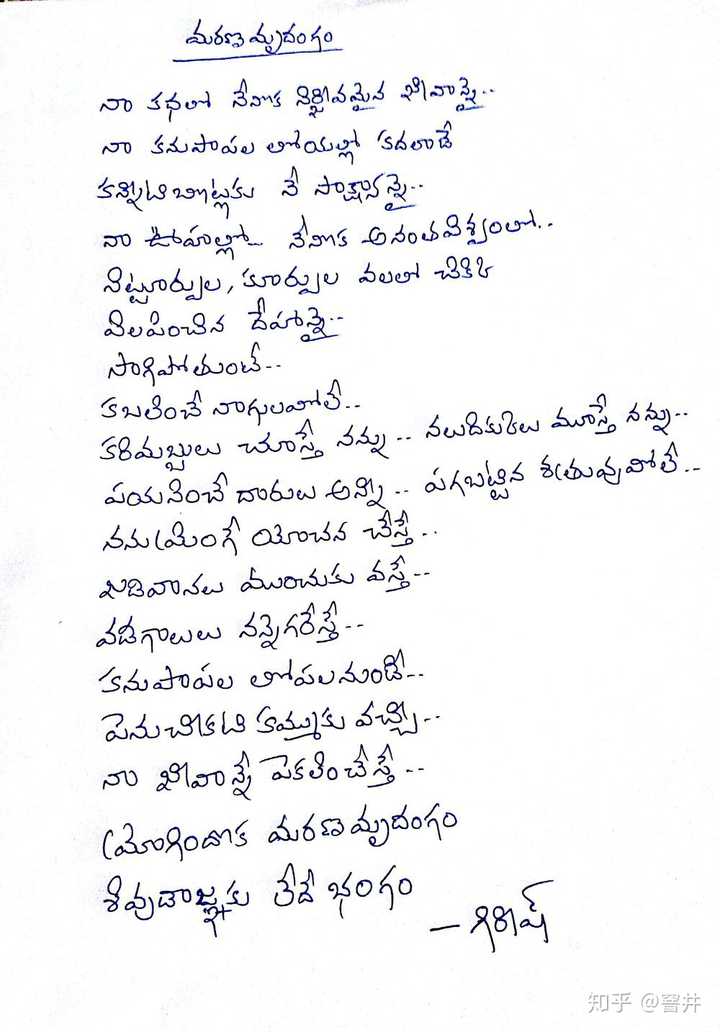 మరణ మృదంగం
నా కథలో నేనొక నిర్జీవమైన జీవాన్నై..
నా కనుపాపల లోయల్లో కదలాడే
కన్నీటి బొట్లకు నే సాక్ష్యాన్నై..
నా ఊహల్లో నేనొక అనంతవిశ్వంలో..
నిట్టూర్పుల, కూర్పుల వలలో చిక్కి
విలపించిన దేహాన్నై..
సాగిపోతుంటే..
కబళించే నాగులవోలే..
కరిమబ్బులు చూస్తే నన్ను.. నలుదిక్కులు మూస్తే నన్ను..
పయనించే దారులు అన్ని.. పగబట్టిన శత్రువువోలే..
నను మ్రింగే యోచన చేస్తే..
జడివానలు ముంచుకు వస్తే..
వడిగాలులు నన్నెగరేస్తే..
కనుపాపల లోపలనుండి..
పెనుచీకటి కమ్ముకు వచ్చి..
నా జీవాన్నే పెకలించేస్తే..
మ్రోగిందొక మరణమృదంగం
శివుడాజ్ఞకు లేదే భంగం
- గిరీష్
知乎 @窨井